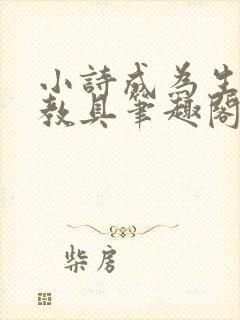 小詩成為生
教具筆趣閣
柴房